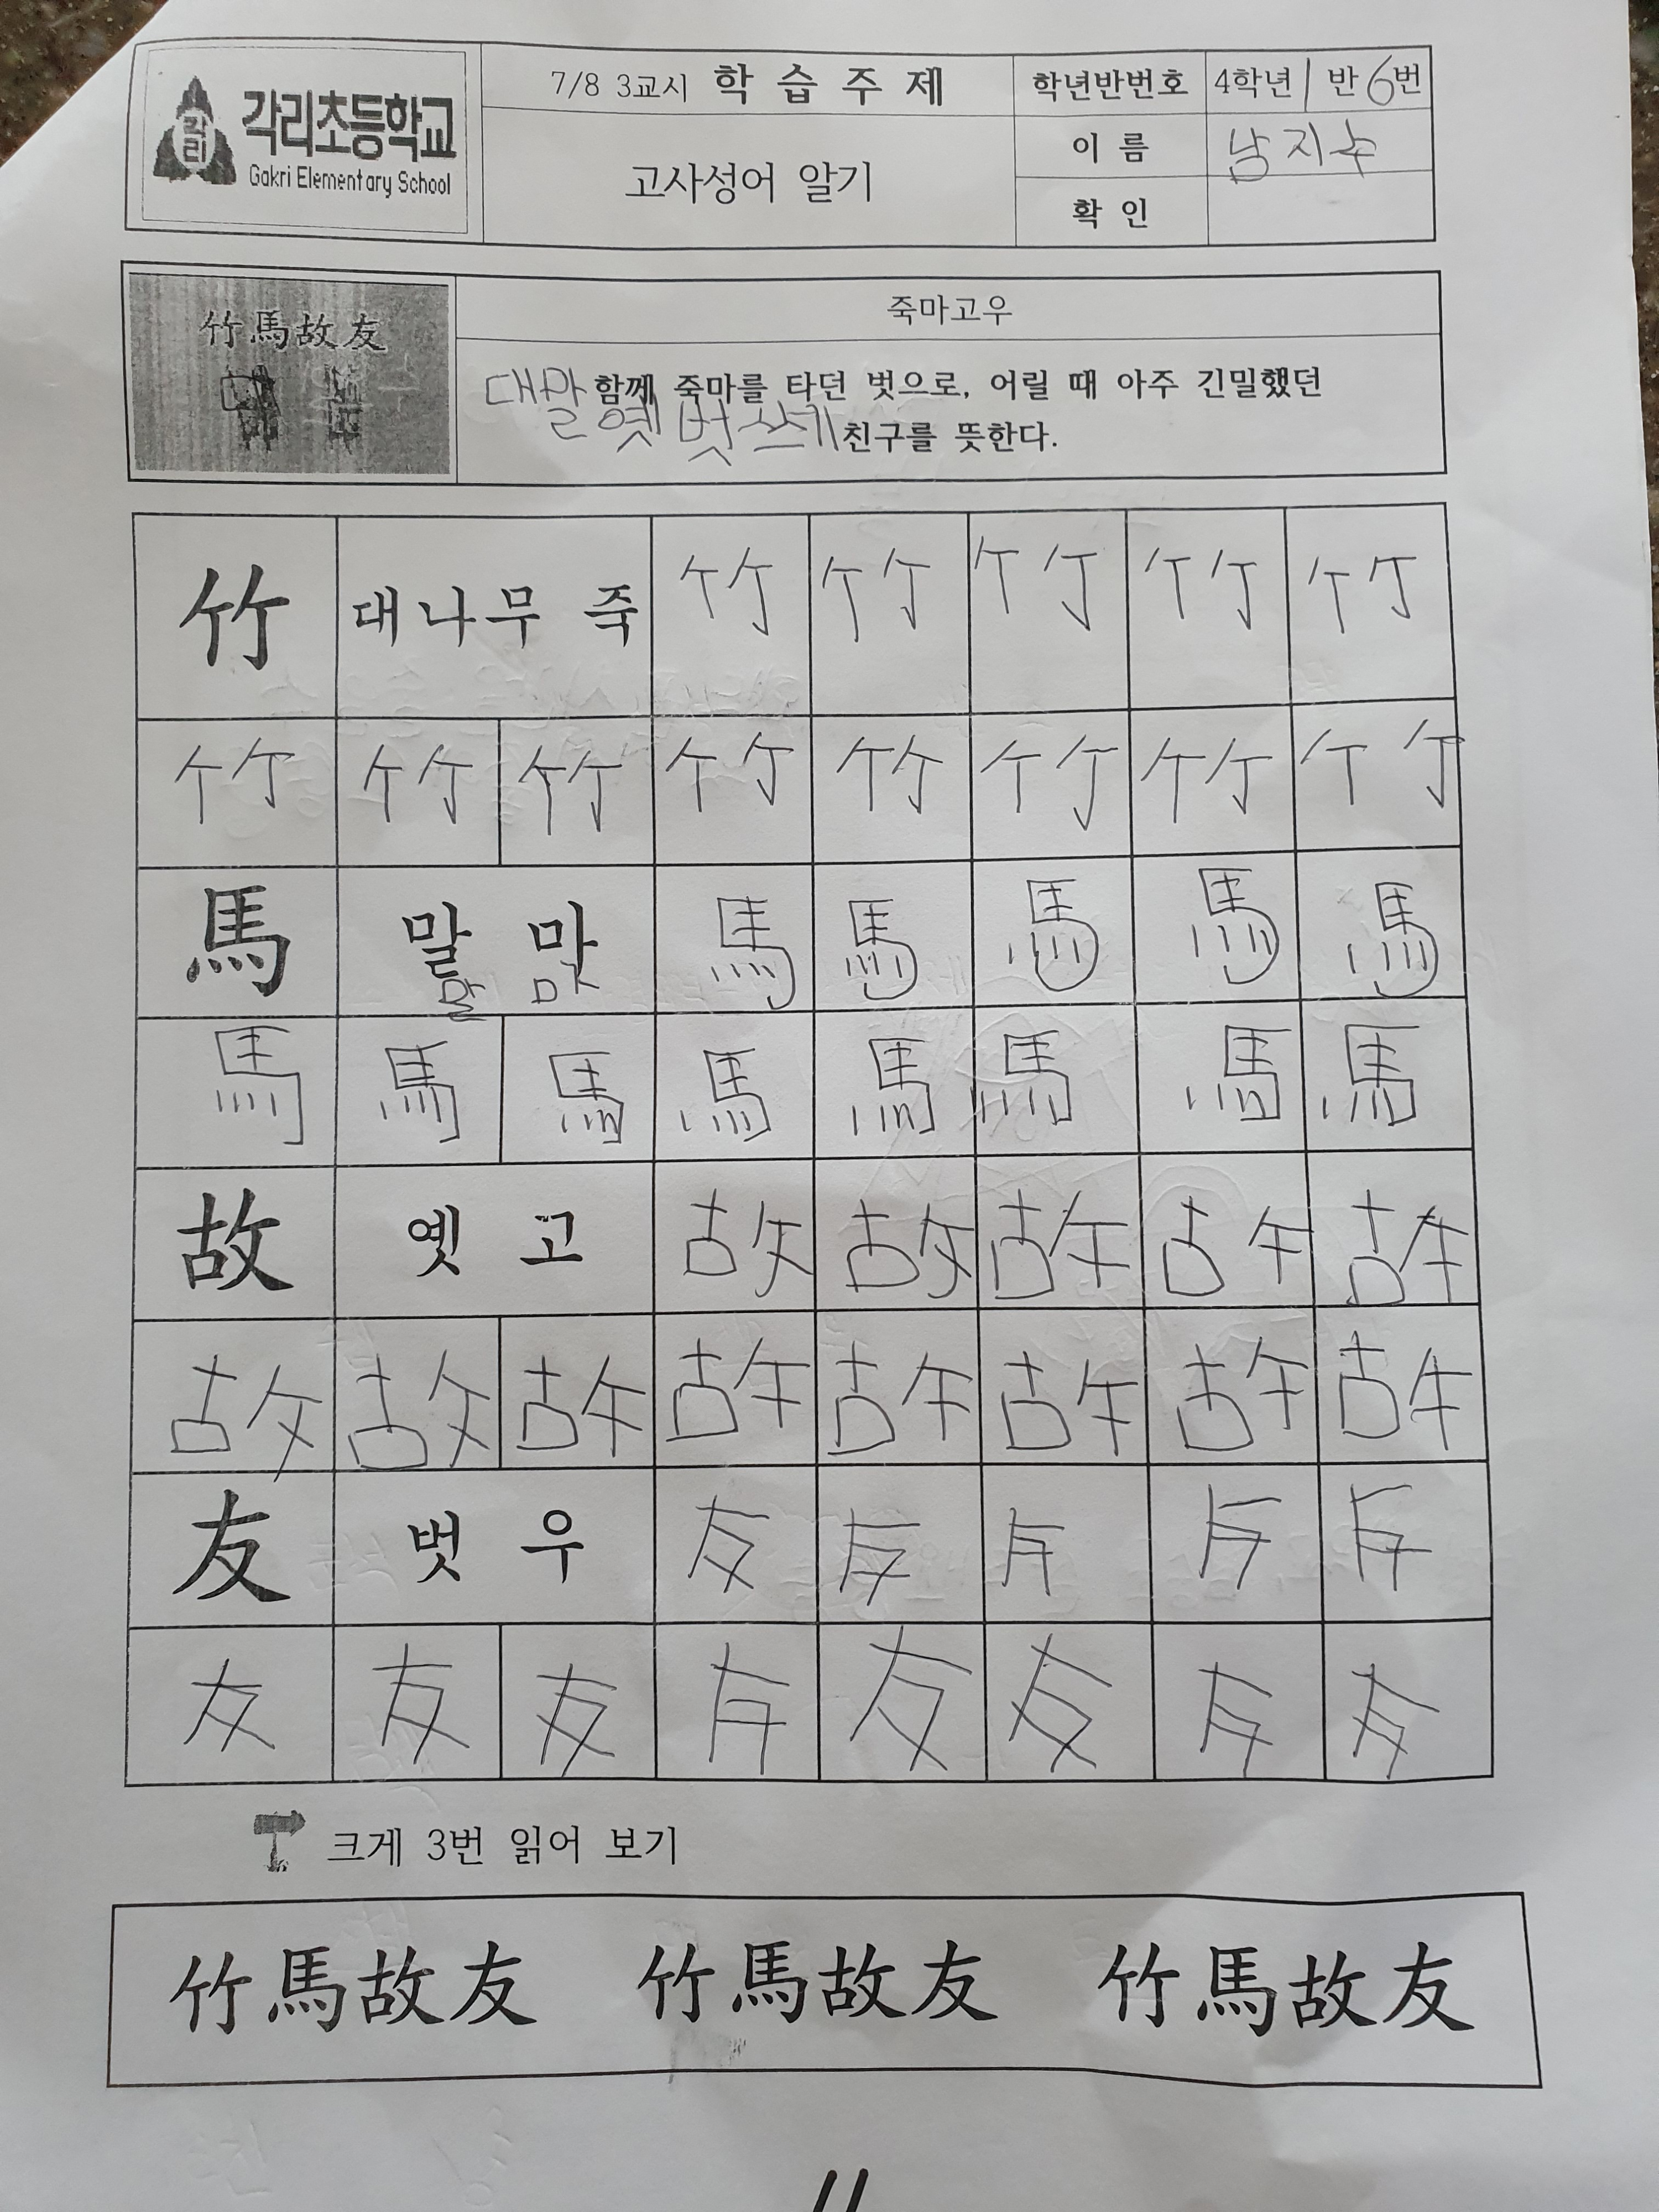 각리초등학교
각리
Gakri Elementary School
7/8 3교시 학 습 주 제
고사성어 알기
학년반번호 4학년 1 반 6번
이 름 남지수
확 인
竹馬故友
죽마고우
대말 함께 죽마를 타던 벗으로, 어릴 때 아주 긴밀했던
옛 벗 친구를 뜻한다.
竹 대나무 죽 竹 竹 竹 竹 竹
竹 竹 竹 竹 竹 竹 竹 竹
馬 말 마 馬 馬 馬 馬 馬
말 마
馬 馬 馬 馬 馬 馬 馬 馬
故 옛 고 故 故 故 故 故
故 故 故 故 故 故 故 故
友 벗 우 友 友 友 友 友
友 友 友 友 友 友 友 友
크게 3번 읽어 보기
竹馬故友 竹馬故友 竹馬故友